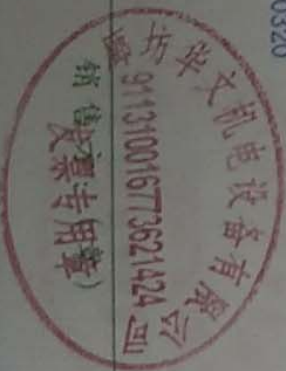 0320
廊坊华文机电设备有限公司
911310016773621424
发票专用章
销售方：（章）